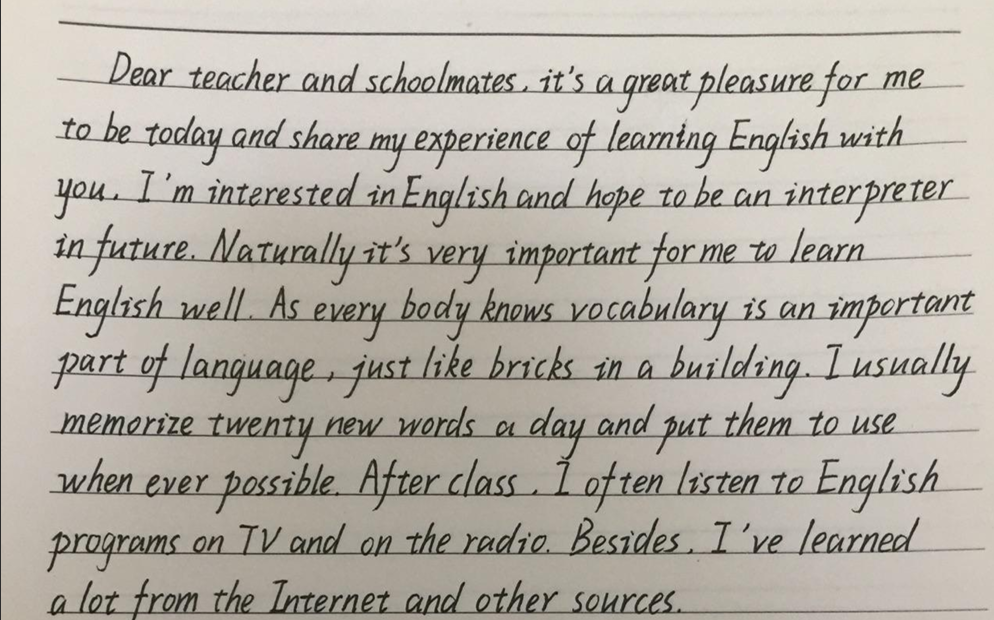 Dear teacher and schoolmates, it's a great pleasure for me
to be today and share my experience of learning English with
you. I'm interested in English and hope to be an interpreter
in future. Naturally it's very important for me to learn
English well. As every body knows vocabulary is an important
part of language, just like bricks in a building. I usually
memorize twenty new words a day and put them to use
when ever possible. After class. I often listen to English
programs on TV and on the radio. Besides. I've learned
a lot from the Internet and other sources.